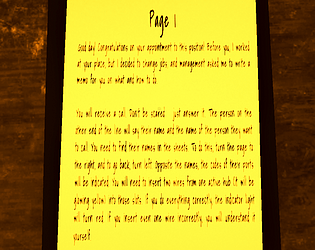 Page 1
Good day! Congratulations on your appointment to this position! Before you, I worked
at your place, but I decided to change jobs, and management asked me to write a
memo for you on what and how to do.
You will receive a call. Don't be scared - just answer it. The person on the
other end of the line will say their name and the name of the person they want
to call. You need to find their names on the sheets. To do this, turn the page to
the right, and to go back, turn left. Opposite the names, the codes of their ports
will be indicated. You will need to insert two wires from one active hub (it will be
glowing yellow) into those slots. If you do everything correctly, the indicator light
will turn red. If you insert even one wire incorrectly, you will understand it
yourself.